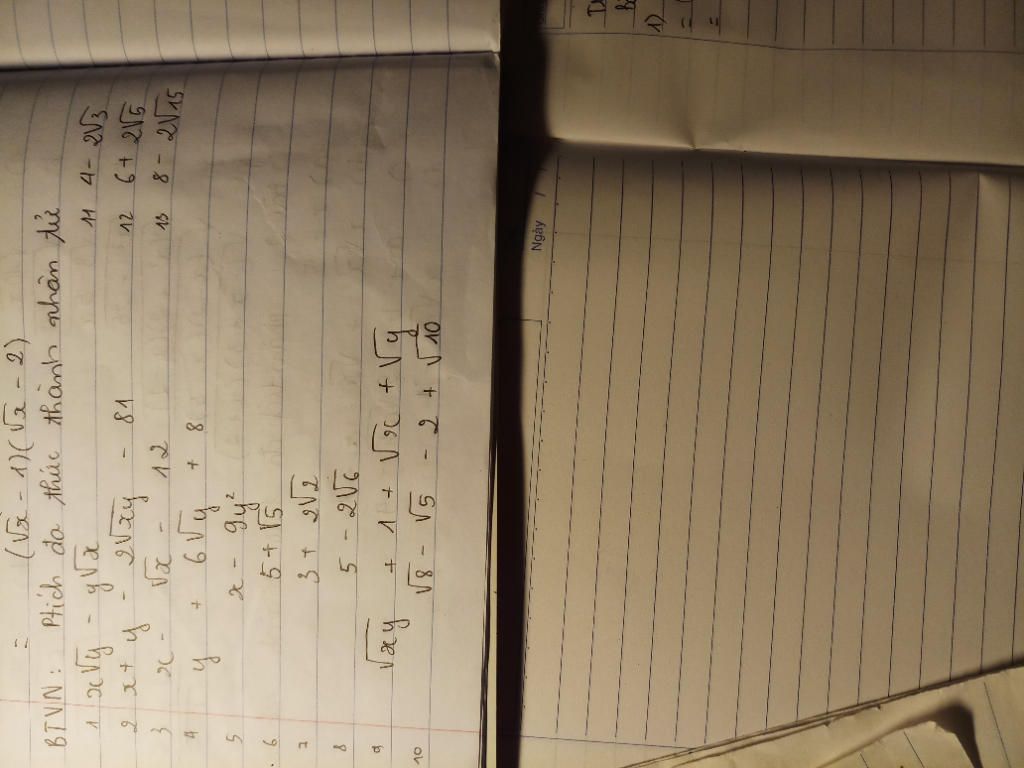 = (√x - 1)(√x - 2)
BTVN: Ptích đa thức thành nhân tử
1 x√y - y√x
2 x + y - 2√xy - 81
3 x - √x - 12
4 y + 6√y + 8
5 x - 9y²
6 5 + √5
7 3 + 2√2
8 5 - 2√6
9 √xy + 1 + √x + √y
10 √8 - √5 - 2 + √10
11 4 - 2√3
12 6 + 2√5
13 8 - 2√15
Ngày / /
1)
=
=